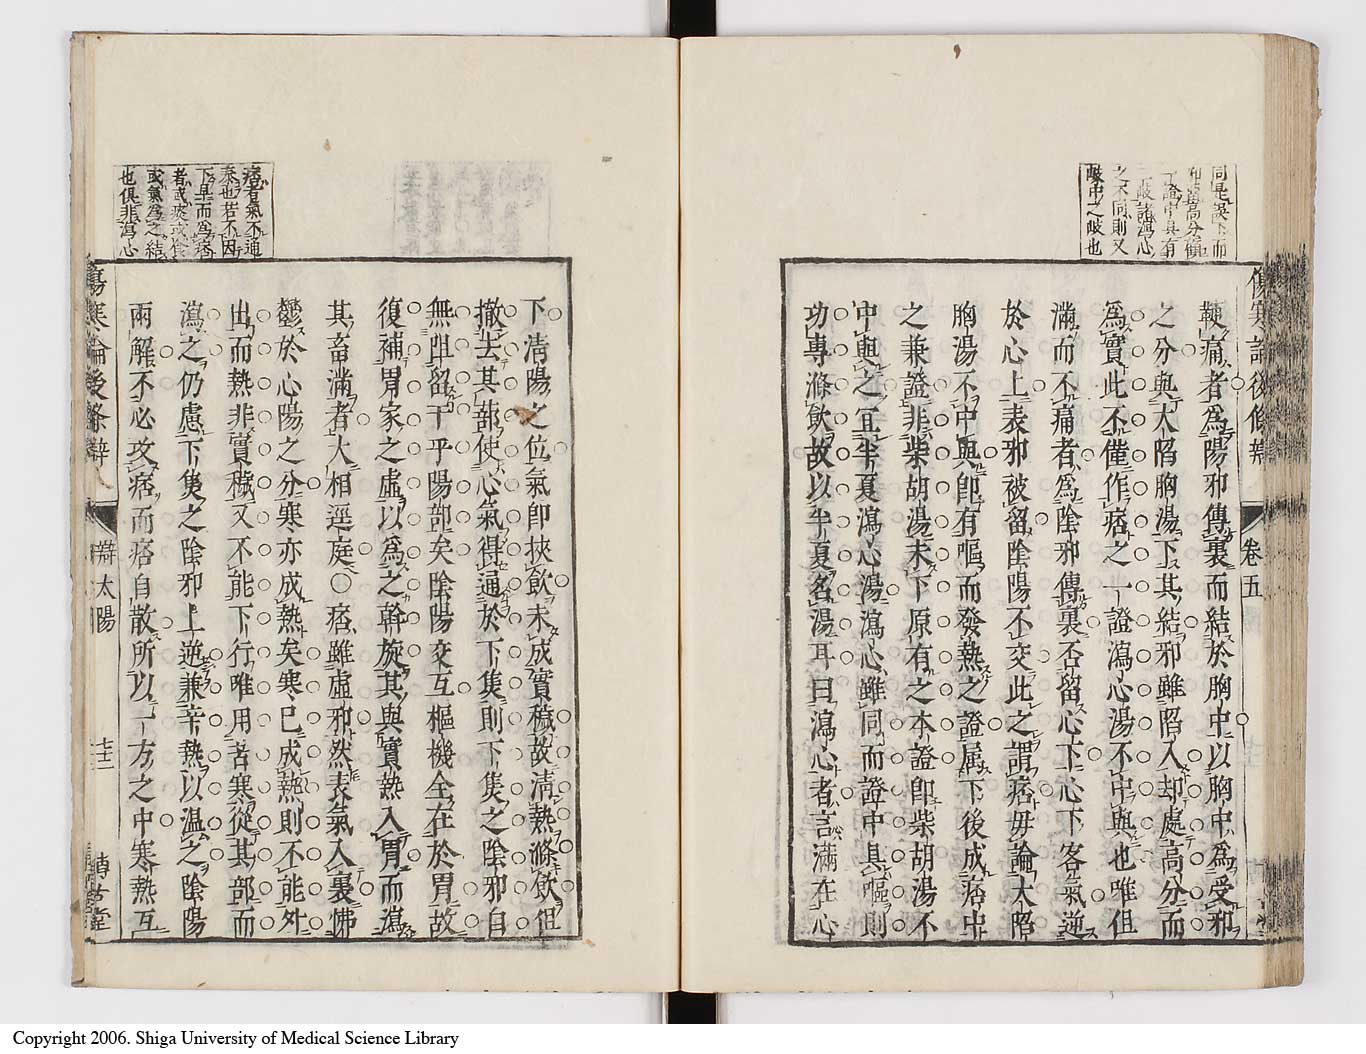 同是誤下而
之不同則又
岐中之岐也
傷寒論後條辨
卷五
鞕痛者爲陽邪傳裏而結於胸中以胸中爲受邪
之分與大陷胸湯下其結邪雖陷入却處高分而
爲實此不僅作痞之一證瀉心湯不中與也唯但
滿而不痛者爲陰邪傳裏否留心下心下客氣逆
於心上表邪被留陰陽不交此之謂痞毋論大陷
胸湯不中與即有嘔而發熱之證属下後成痞中
之兼證非柴胡湯未下原有之本證即柴胡湯不
中與之宜半夏瀉心湯瀉心雖同而證中具嘔則
功專滌飲故以半夏名湯耳曰瀉心者言滿在心
下清陽之位氣即挾飲未成實穢故清熱滌飲但
撤去其部使心氣得通於下隻則下隻之陰邪自
無阻留于乎陽部矣陰陽交互樞機全在於胃故
復補胃家之虛以爲之斡旋其與實熱入胃而瀉
其畜滿者大相逕庭〇痞雖虛邪然表氣入裏怫
鬱於心陽之分寒亦成熱矣寒已成熱則不能外
出而熱非實穢又不能下行唯用苦寒從其部而
瀉之仍慮下隻之陰邪上逆兼辛熱以温之陰陽
兩解不必攻痞而痞自散所以一方之中寒熱互
痞者氣不通
泰也若不因
下早而爲痞
者或痰或食
或氣爲之結
也俱非瀉心
傷寒論後條辨
辯太陽